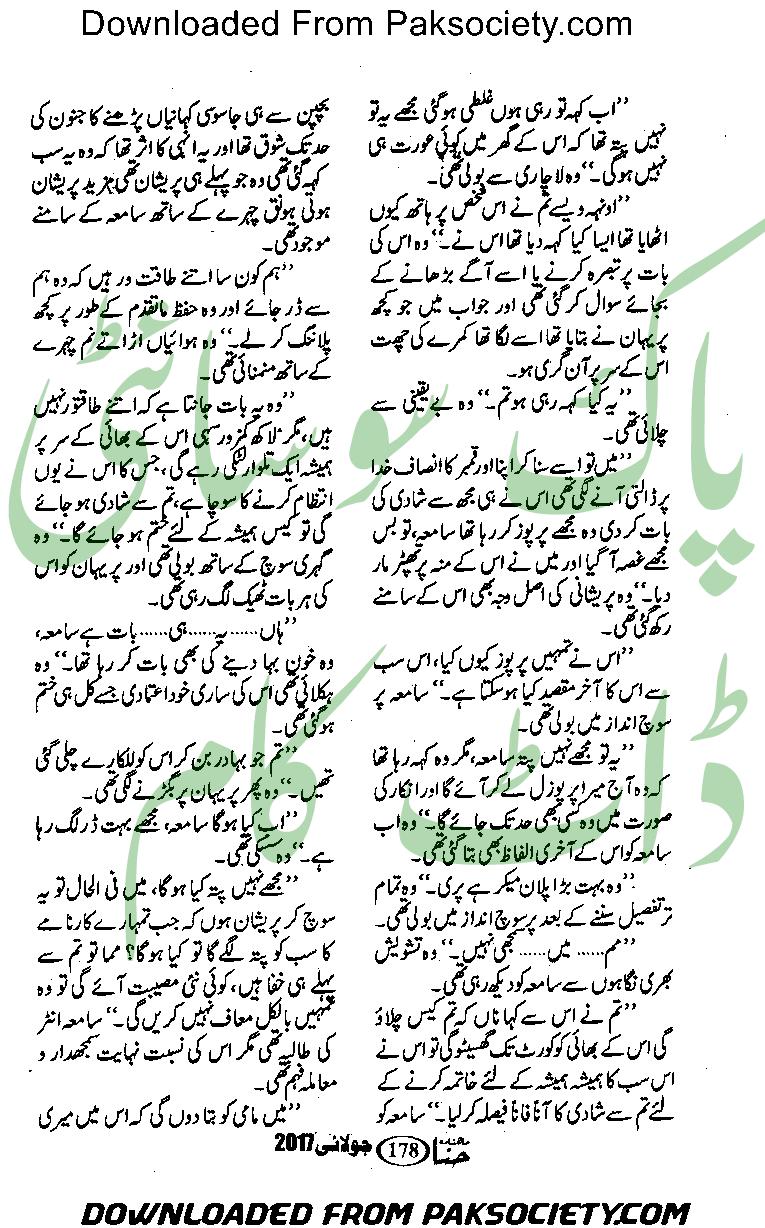 Downloaded From Paksociety.com
"اب کہہ تو رہی ہوں غلطی ہو گئی مجھے یہ تو
نہیں پتہ تھا کہ اس کے گھر میں کوئی عورت ہی
نہیں ہو گی۔" وہ لاچاری سے بولی تھی۔
"اونہہ ویسے تم نے اس شخص پر ہاتھ کیوں
اٹھایا تھا ایسا کیا کہہ دیا تھا اس نے۔" وہ اس کی
بات پر تبصرہ کرنے یا اسے آگے بڑھانے کے
بجائے سوال کر گئی تھی اور جواب میں جو کچھ
پریہان نے بتایا تھا اسے لگا تھا کمرے کی چھت
اس کے سر پر آن گری ہو۔
"یہ کیا کہہ رہی ہو تم۔" وہ بے یقینی سے
چلائی تھی۔
"میں تو اسے سنا کر اپنا اور قمبر کا انصاف خدا
پر ڈالتی آنے لگی تھی اس نے ہی مجھ سے شادی کی
بات کر دی وہ مجھے پرپوز کر رہا تھا سامعہ، تو بس
مجھے غصہ آ گیا اور میں نے اس کے منہ پر تھپڑ مار
دیا۔" وہ پریشانی کی اصل وجہ بھی اس کے سامنے
رکھ گئی تھی۔
"اس نے تمہیں پرپوز کیوں کیا، اس سب
سے اس کا آخر مقصد کیا ہو سکتا ہے۔" سامعہ پر
سوچ انداز میں بولی تھی۔
"یہ تو مجھے نہیں پتہ سامعہ، مگر وہ کہہ رہا تھا
کہ وہ آج میرا پرپوزل لے کر آئے گا اور انکار کی
صورت میں وہ کسی بھی حد تک جائے گا۔" وہ اب
سامعہ کو اس کے آخری الفاظ بھی بتا گئی تھی۔
"وہ بہت بڑا پلان میکر ہے پری۔" وہ تمام
تر تفصیل سننے کے بعد پر سوچ انداز میں بولی تھی۔
"مم...... میں...... سمجھی نہیں۔" وہ تشویش
بھری نگاہوں سے سامعہ کو دیکھ رہی تھی۔
"تم نے اس سے کہا ناں کہ تم کیس چلاؤ
گی اس کے بھائی کو کورٹ تک گھسیٹو گی تو اس نے
اس سب کا ہمیشہ ہمیشہ کے لئے خاتمہ کرنے کے
لئے تم سے شادی کا آناً فاناً فیصلہ کر لیا۔" سامعہ کو
بچپن سے ہی جاسوسی کہانیاں پڑھنے کا جنون کی
حد تک شوق تھا اور یہ انہی کا اثر تھا کہ وہ یہ سب
کہہ گئی تھی وہ جو پہلے ہی پریشان تھی مزید پریشان
ہوئی ہونق چہرے کے ساتھ سامعہ کے سامنے
موجود تھی۔
"ہم کون سا اتنے طاقت ور ہیں کہ وہ ہم
سے ڈر جائے اور وہ حفظ ماتقدم کے طور پر کچھ
پلاننگ کر لے۔" وہ ہوائیاں اڑاتے نم چہرے
کے ساتھ منمنائی تھی۔
"وہ یہ بات جانتا ہے کہ اتنے طاقتور نہیں
ہیں، مگر لاکھ کمزور سہی اس کے بھائی کے سر پر
ہمیشہ ایک تلوار لٹکی رہے گی، جس کا اس نے یوں
انتظام کرنے کا سوچا ہے، تم سے شادی ہو جائے
گی تو کیس ہمیشہ کے لئے ختم ہو جائے گا۔" وہ
گہری سوچ کے ساتھ بولی تھی اور پریہان کو اس
کی ہر بات ٹھیک لگ رہی تھی۔
"ہاں...... یہ...... ہی...... بات ہے سامعہ،
وہ خون بہا دینے کی بھی بات کر رہا تھا۔" وہ
ہکلائی تھی اس کی ساری خود اعتمادی جسے کل ہی ختم
ہو گئی تھی۔
"تم جو بہادر بن کر اس کو للکارے چلی گئی
تھیں۔" وہ پھر پریہان پر بگڑنے لگی تھی۔
"اب کیا ہو گا سامعہ، مجھے بہت ڈر لگ رہا
ہے۔" وہ سسکی تھی۔
"مجھے نہیں پتہ کیا ہو گا، میں فی الحال تو یہ
سوچ کر پریشان ہوں کہ جب تمہارے کارنامے
کا سب کو پتہ لگے گا تو کیا ہو گا؟ مما تو تم سے
پہلے ہی خفا ہیں، کوئی نئی مصیبت آئے گی تو وہ
تمہیں بالکل معاف نہیں کریں گی۔" سامعہ انٹر
کی طالبہ تھی مگر اس کی نسبت نہایت سمجھدار و
معاملہ فہم تھی۔
"میں مامی کو بتا دوں گی کہ اس میں میری
حنا 178 جولائی 2017
پاک سوسائٹی
ڈاٹ کام
DOWNLOADED FROM PAKSOCIETY.COM